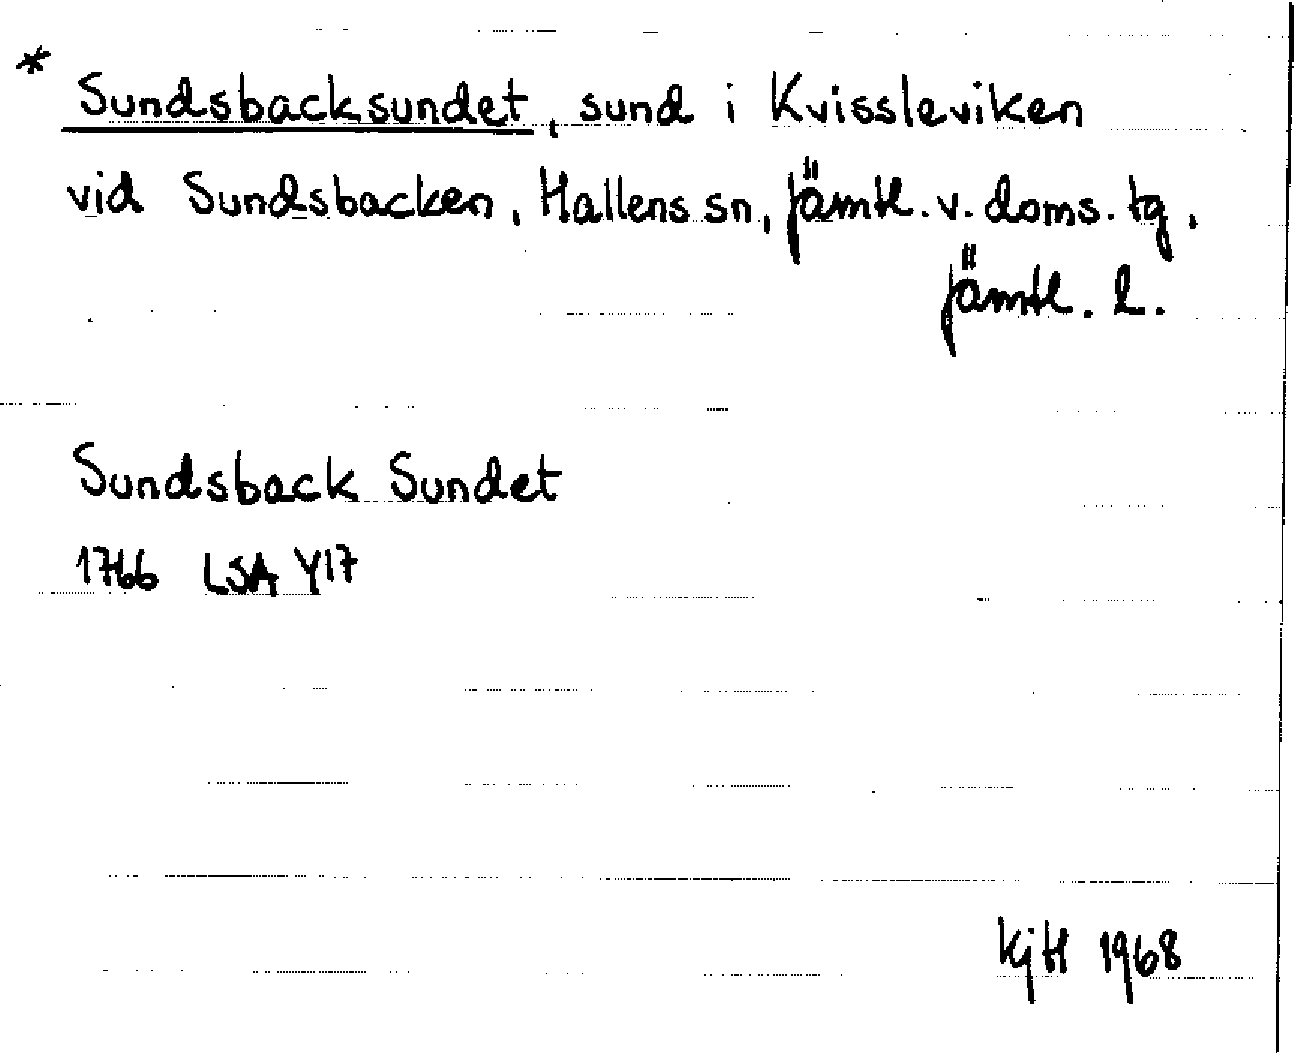 * Sundsbacksundet, sund i Kvissleviken
vid Sundsbacken, Hallens sn, Jämtl. v. doms. tg.
Jämtl. l.
Sundsback Sundet
1766 LSA Y17
KjH 1968